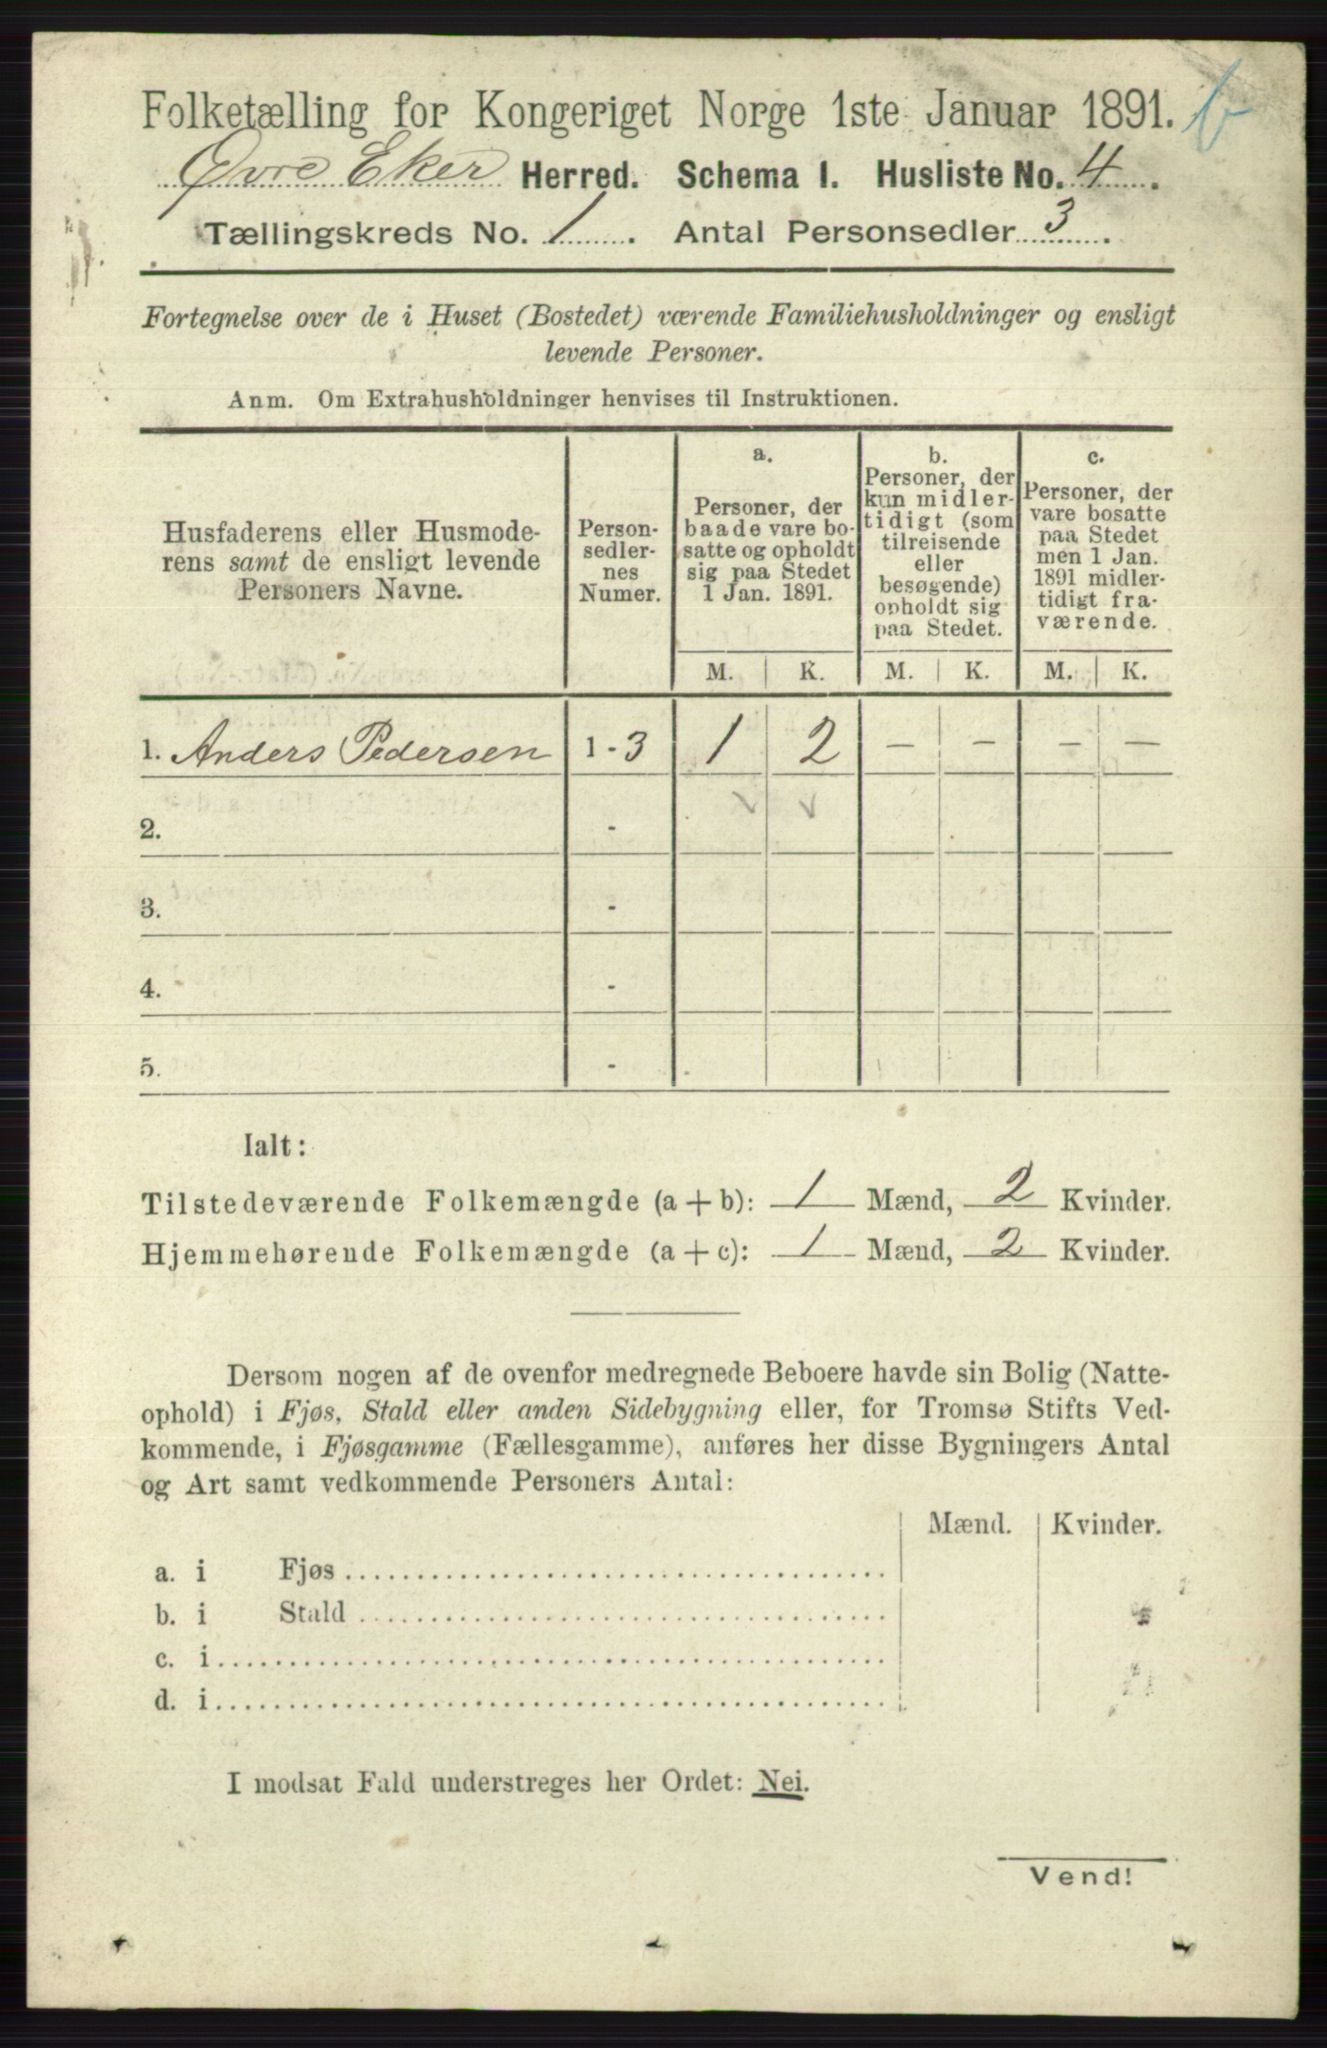 Folketælling for Kongeriget Norge 1ste Januar 1891. b
Øvre Eker Herred. Schema 1. Husliste No. 4.
Tællingskreds No. 1. Antal Personsedler 3.
Fortegnelse over de i Huset (Bostedet) værende Familiehusholdninger og ensligt
levende Personer.
Anm. Om Extrahusholdninger henvises til Instruktionen.
Husfaderens eller Husmode-
rens samt de ensligt levende
Personers Navne.
Person-
sedler-
nes
Numer.
a.
Personer, der
baade vare bo-
satte og opholdt
sig paa Stedet
1 Jan. 1891.
b.
Personer, der
kun midler-
tidigt (som
tilreisende
eller
besøgende)
opholdt sig
paa Stedet.
c.
Personer, der
vare bosatte
paa Stedet
men 1 Jan.
1891 midler-
tidigt fra-
værende.
M. K. M. K. M. K.
1. Anders Pedersen 1 - 3 1 2 – – – –
2. -
3. -
4. -
5. -
Ialt:
Tilstedeværende Folkemængde (a + b): 1 Mænd, 2 Kvinder.
Hjemmehørende Folkemængde (a + c): 1 Mænd, 2 Kvinder.
Dersom nogen af de ovenfor medregnede Beboere havde sin Bolig (Natte-
ophold) i Fjøs, Stald eller anden Sidebygning eller, for Tromsø Stifts Ved-
kommende, i Fjøsgamme (Fællesgamme), anføres her disse Bygningers Antal
og Art samt vedkommende Personers Antal:
Mænd. Kvinder.
a. i Fjøs
b. i Stald
c. i
d. i
I modsat Fald understreges her Ordet: Nei.
Vend!